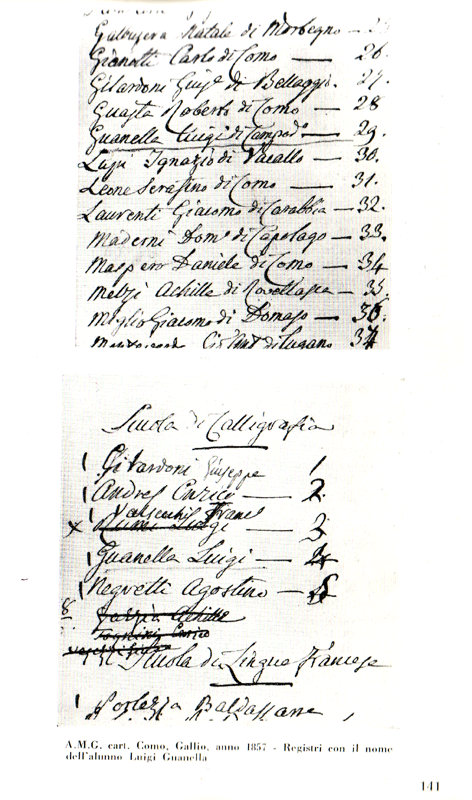 Natale di Morbegno —
Gianotti Carlo di Como — 26.
Gilardoni Gius.e di Bellaggio. 27.
Guasta Roberto di Como — 28
Guanella Luigi di Campod.o — 29.
Luzzi Ignazio di Vacallo — 30.
Leone Serafino di Como — 31.
Laurenti Giacomo di Carabbia — 32.
Maderni Dom.o di Capolago — 33.
Daniele di Como — 34
Melzi Achille di Rovellasca — 35
Miglio Giacomo di Domaso — 36.
di Lugano 37
Scuola di Calligrafia
Gilardoni Giuseppe 1
Andres Enrico — 2.
x Luigi — 3
Guanella Luigi — 4
Negretti Agostino — 5
8
Achille
Enrico
Scuola di Lingua Francese
1 Porlezza Baldassare 1
A.M.G. cart. Como, Gallio, anno 1857 - Registri con il nome
dell'alunno Luigi Guanella
141